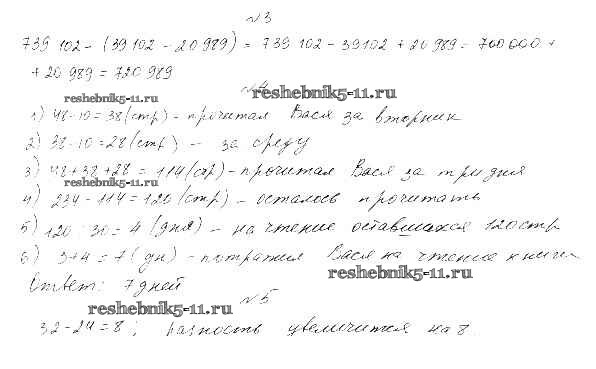 №3
739 102 - (39 102 - 20 989) = 739 102 - 39102 + 20 989 = 700 000 +
+ 20 989 = 720 989
№4
reshebnik5-11.ru reshebnik5-11.ru
1) 48-10=38 (стр) - прочитал Вася за вторник
2) 38-10=28 (стр) - за среду
3) 48+38+28 = 114 (стр) - прочитал Вася за три дня
reshebnik5-11.ru
4) 234-114=120 (стр) - осталось прочитать
5) 120 : 30 = 4 (дня) - на чтение оставшихся 120 стр
6) 3+4=7 (дн) - потратил Вася на чтение книги
reshebnik5-11.ru
Ответ: 7 дней
№5
reshebnik5-11.ru
32-24=8; разность увеличится на 8.